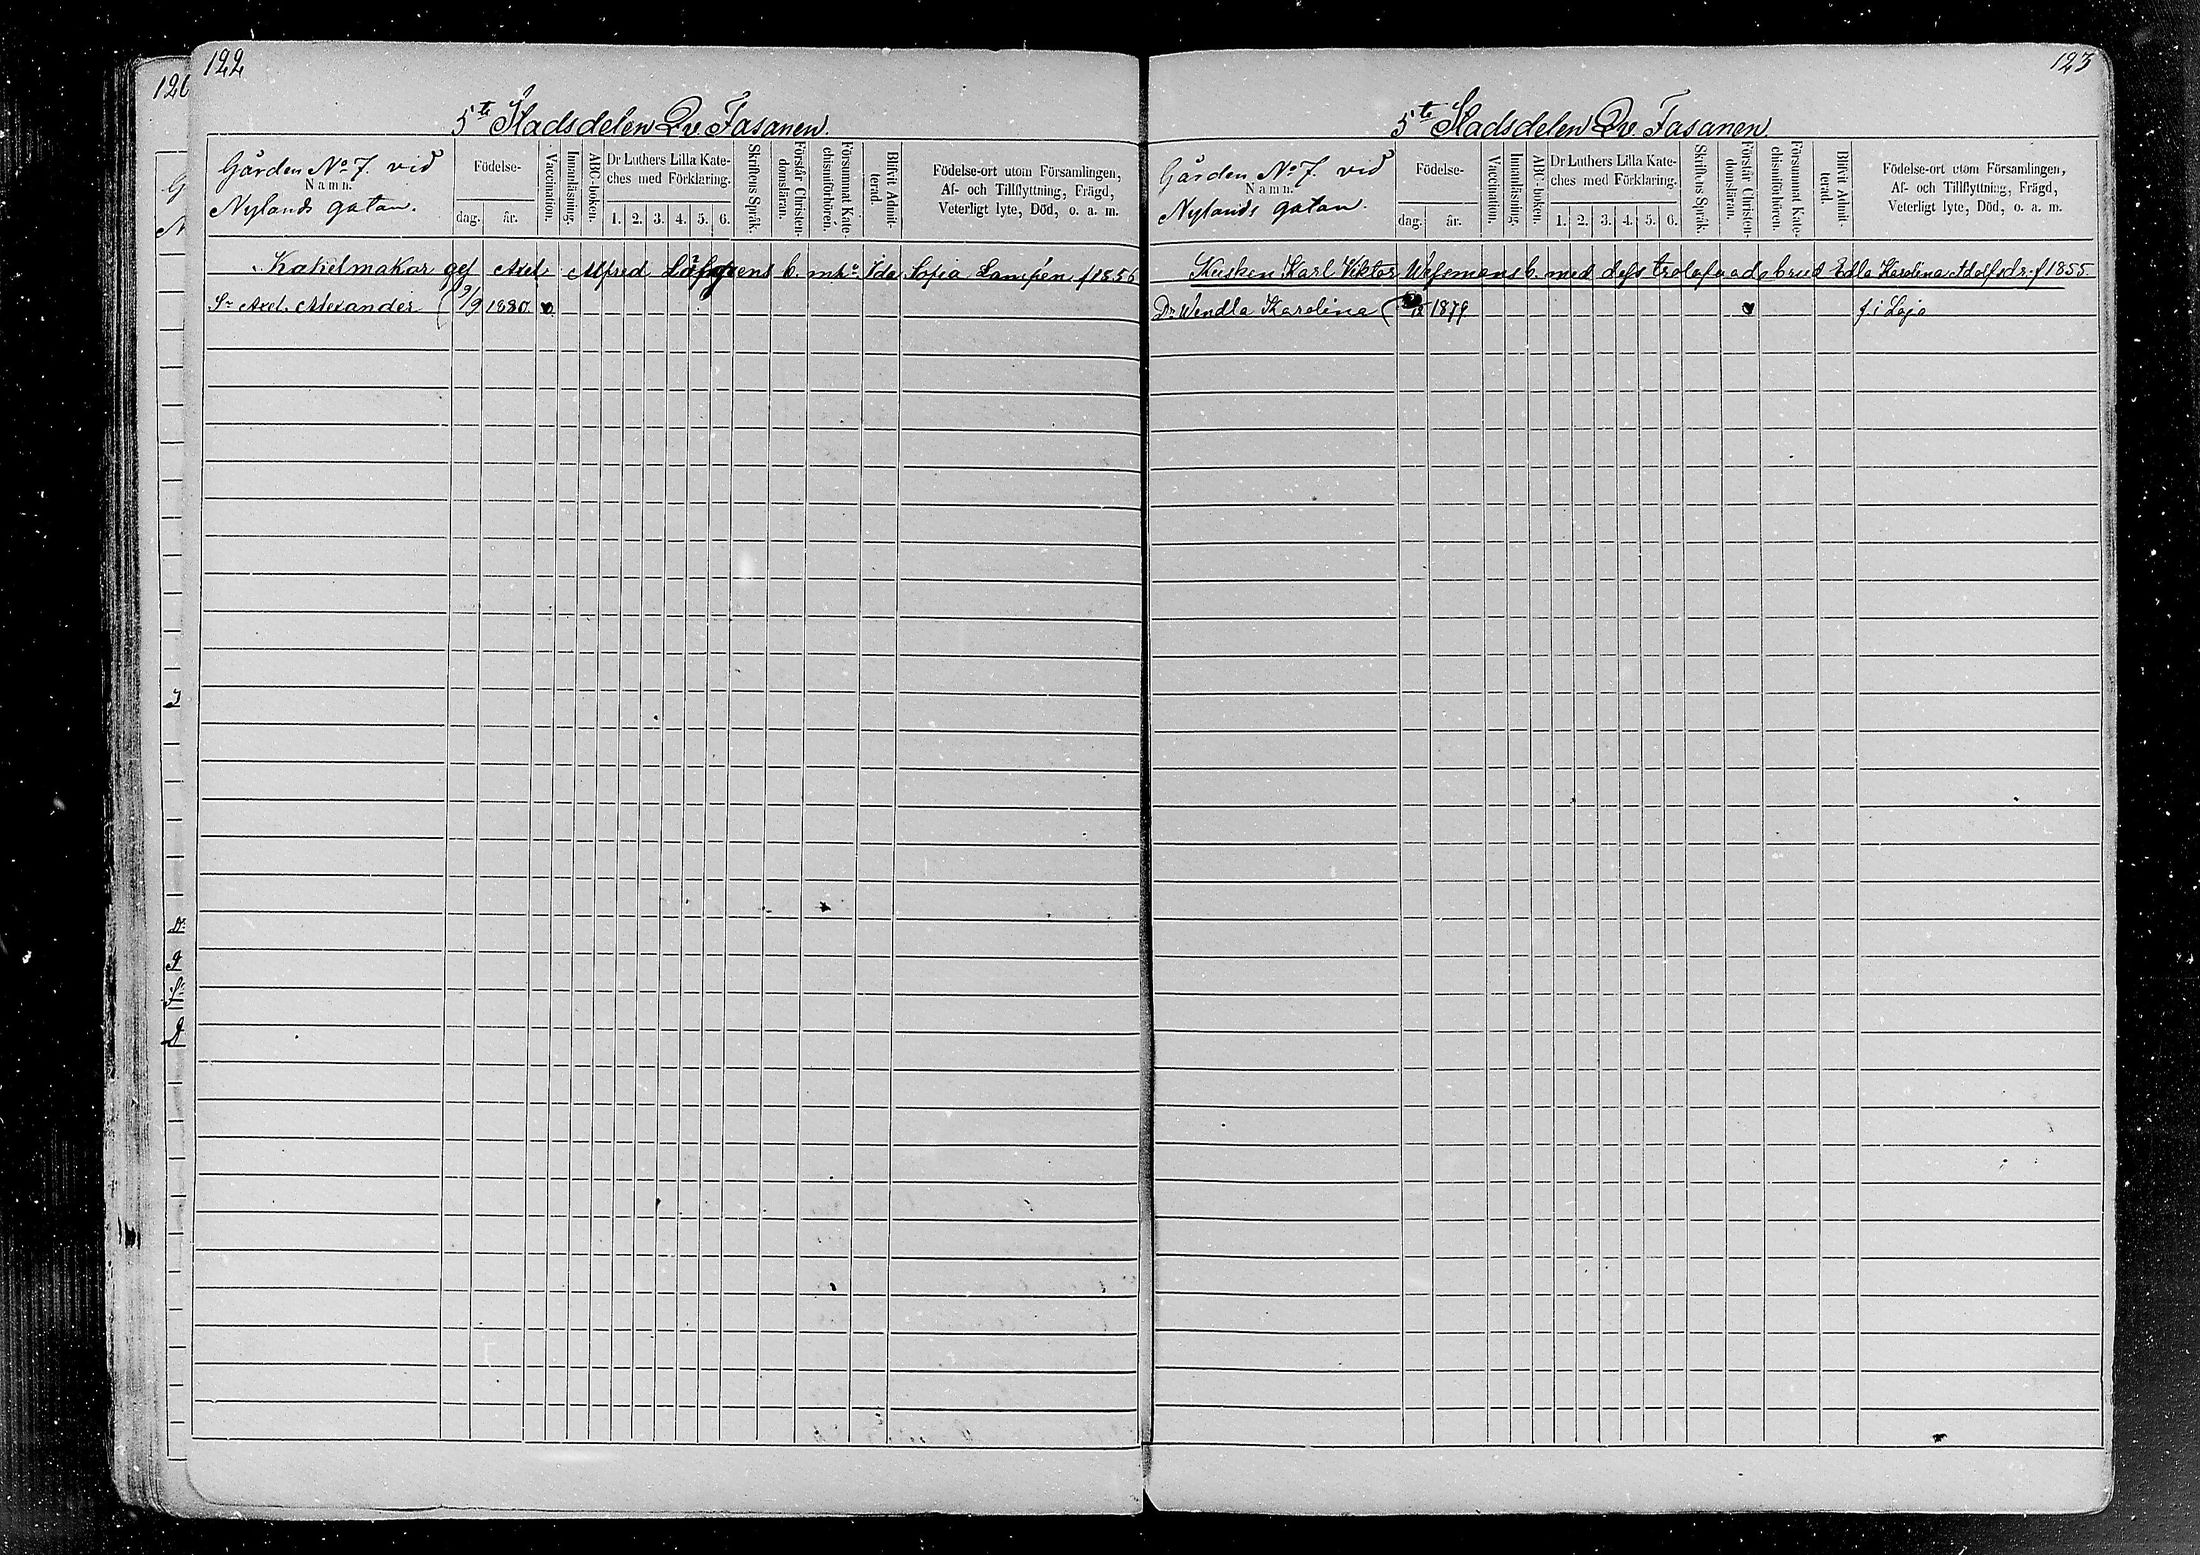 122
5te Stadsdelen Qv. Fasanen.
Gården No 7. vid
Namn.
Nylands gatan.
Födelse-
dag.
år.
Vaccination.
Innanläsning.
ABC-boken.
Dr Luthers Lilla Kate-
ches med Förklaring.
1. 2. 3. 4. 5. 6.
Skriftens Språk.
Förstår Christen-
domsläran.
Försummat Kate-
chismiförhören.
Blifvit Admit-
terad.
Födelse-ort utom Församlingen,
Af- och Tillflyttning, Frägd,
Veterligt lyte, Död, o. a. m.
Kakelmakar ges Axel Alfred Löfgrens b. m. h. Ida Sofia Lampén f 1856
Sr Axel Alexander 9/9 1880. v.
123
5te Stadsdelen Qv. Fasanen.
Gården No 7. vid
Namn.
Nylands gatan.
Födelse-
dag.
år.
Vaccination.
Innanläsning.
ABC-boken.
Dr Luthers Lilla Kate-
ches med Förklaring.
1. 2. 3. 4. 5. 6.
Skriftens Språk.
Förstår Christen-
domsläran.
Försummat Kate-
chismiförhören.
Blifvit Admit-
terad.
Födelse-ort utom Församlingen,
Af- och Tillflyttning, Frägd,
Veterligt lyte, Död, o. a. m.
Kusken Karl Viktor b. med dess trolofvade brud Edla Karolina Adolfsdr. f 1855.
Dr Wendla Karolina 1879 f. i Lojo
120